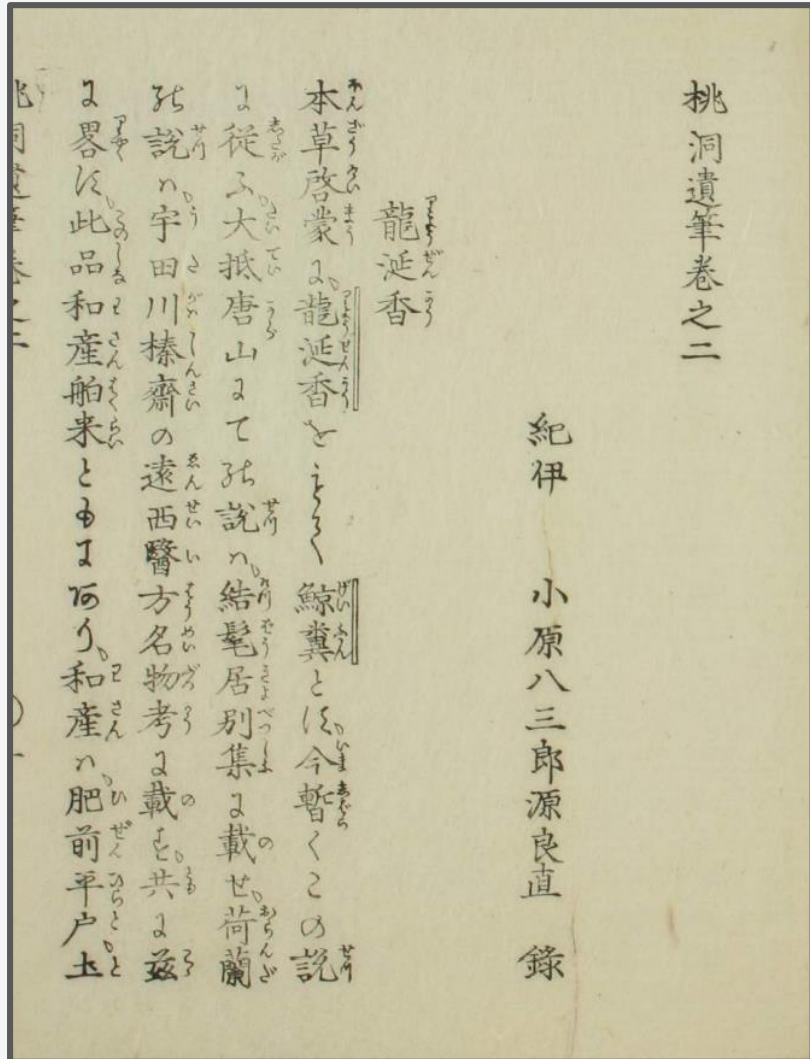 桃洞遺筆巻之二
紀伊 小原八三郎源良直 錄
龍涎香
本草啓蒙に龍涎香をもて鯨糞とす今暫くこの説
に従ふ大抵唐山にての説ハ結髦居別集に載せ荷蘭
の説ハ宇田川榛齋の遠西醫方名物考に載す共に茲
に畧す此品和産舶来ともにあり和産ハ肥前平戸土
桃洞遺筆巻之二